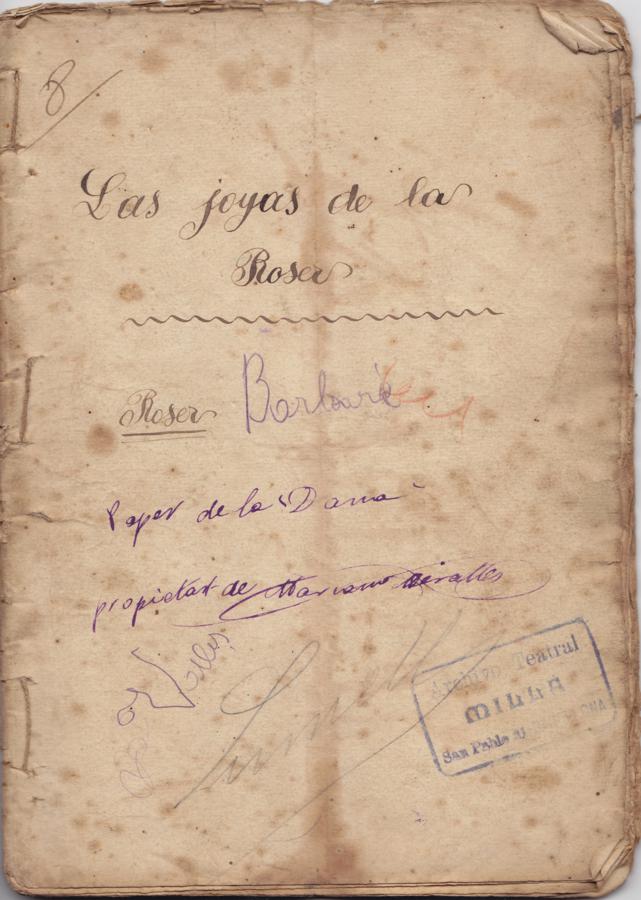 8
Las joyas de la
Roser
Roser Barbará
Paper de la "Dama"
propietat de Mariano Miralles
Archivo Teatral
MILLA
San Pablo 21